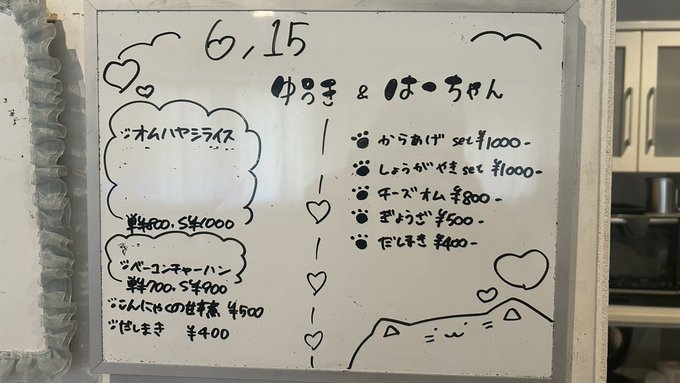 6,15
ゆうき & はーちゃん
オムハヤシライス
単¥800、S¥1000
ベーコンチャーハン
単¥700、S¥900
こんにゃくの甘辛煮 ¥500
だしまき ¥400
からあげ set ¥1000-
しょうがやき set ¥1000-
チーズオム ¥800-
ぎょうざ ¥500-
だしまき ¥400-